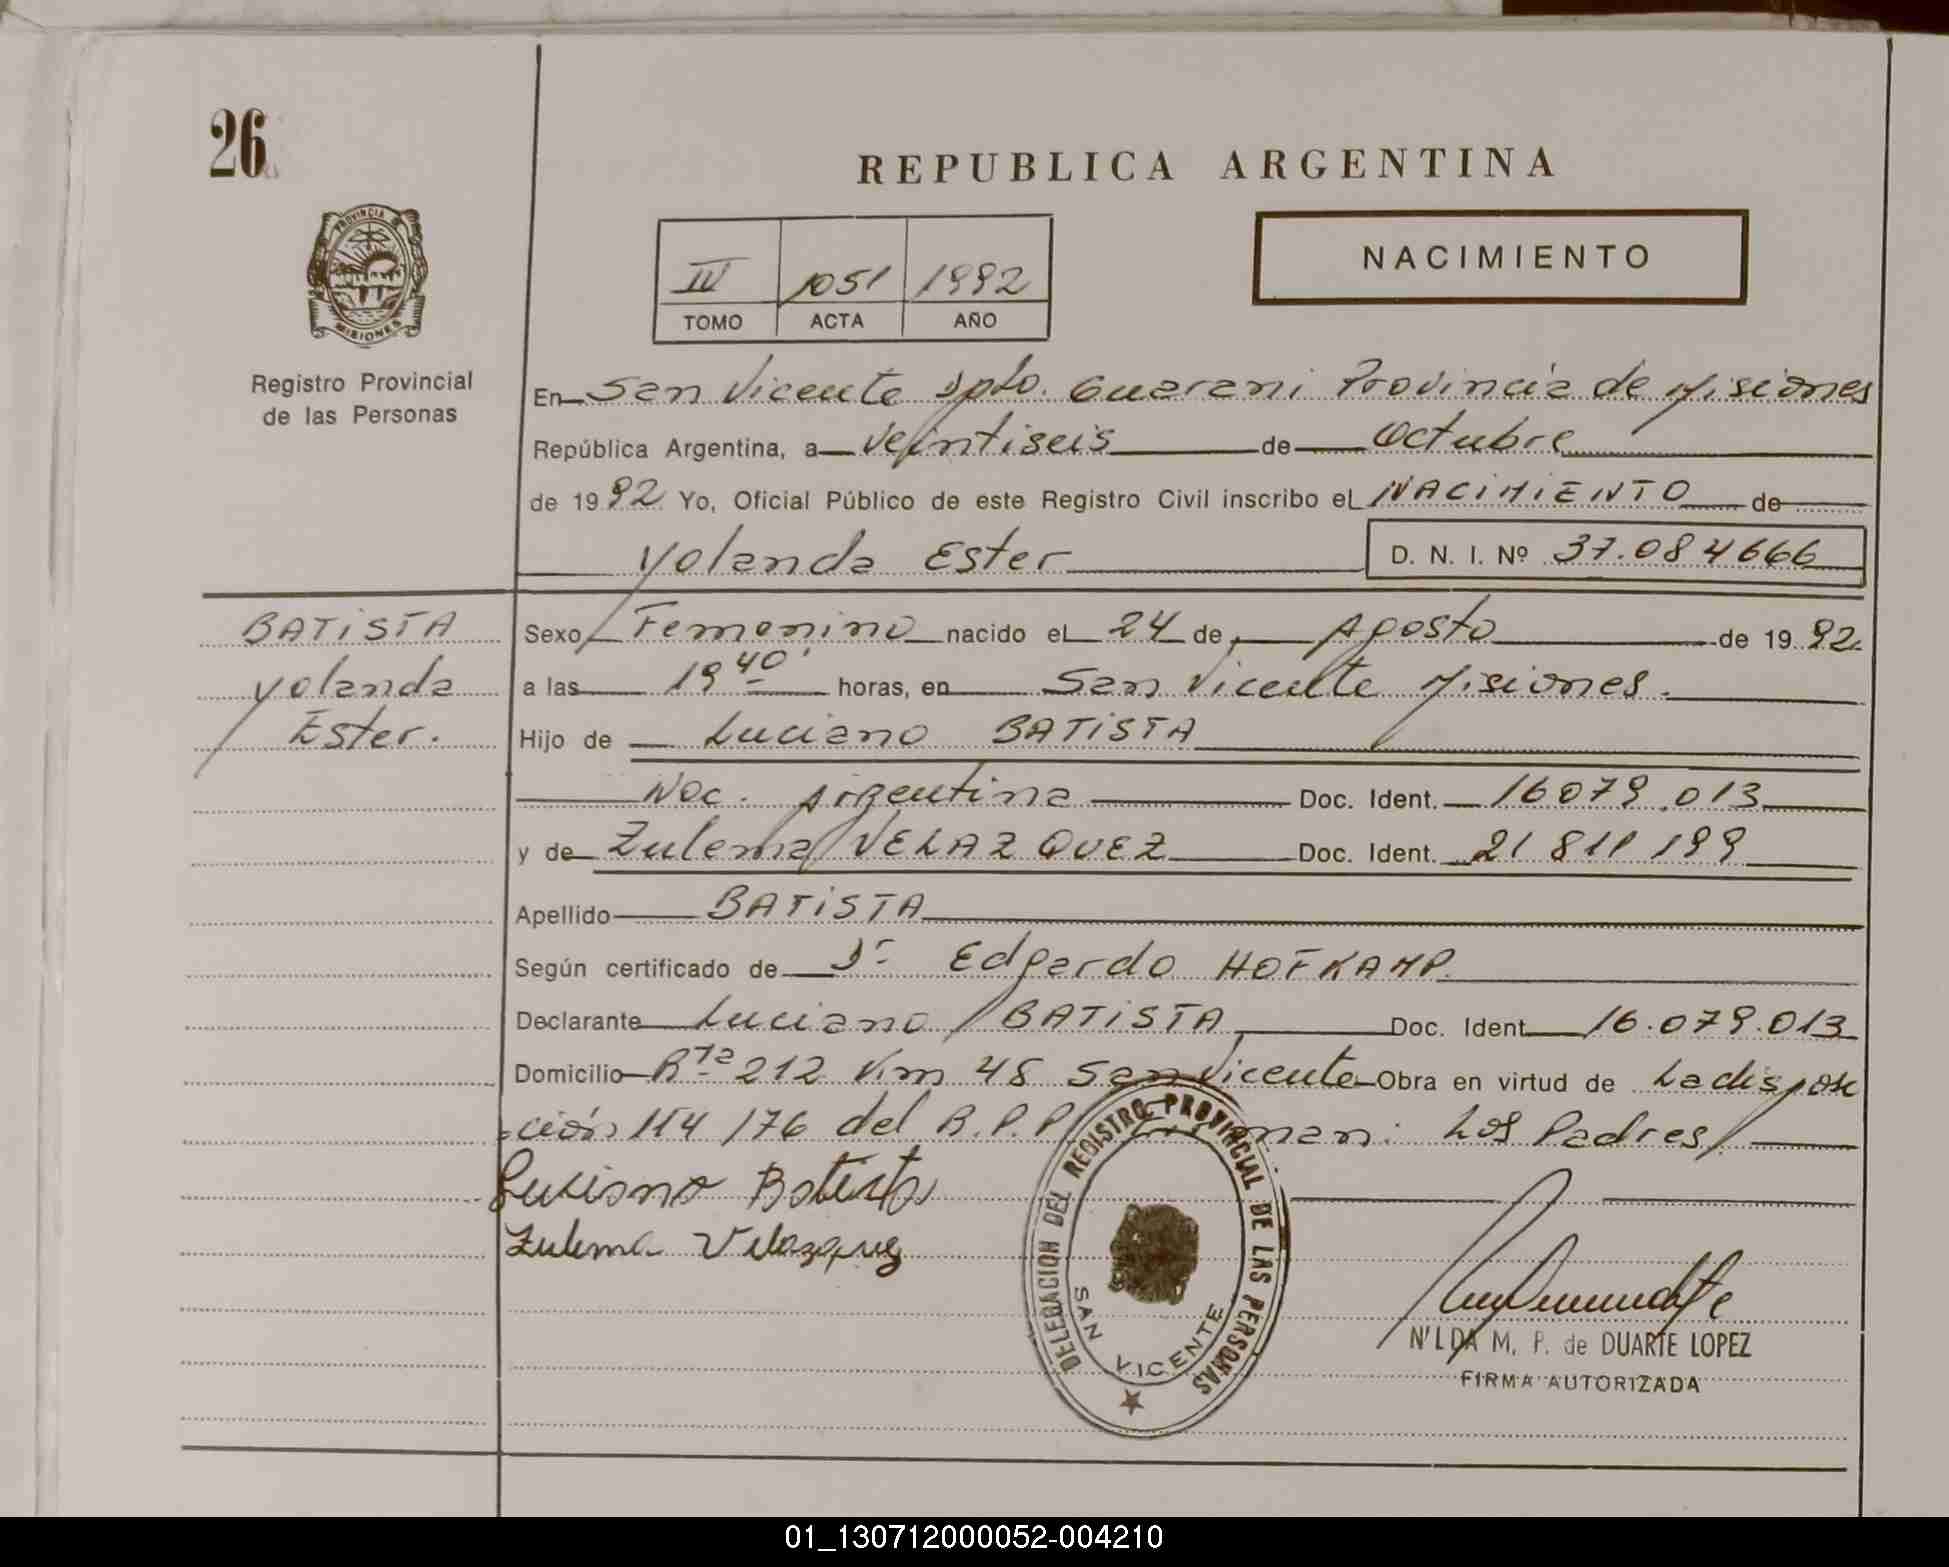 26
REPUBLICA ARGENTINA
PROVINCIA DE
MISIONES
Registro Provincial
de las Personas
NACIMIENTO
IV 1051 1992
TOMO ACTA AÑO
En San Vicente Dpto. Guarani Provincia de Misiones
República Argentina, a veintiseis de Octubre
de 1992 Yo, Oficial Público de este Registro Civil inscribo el NACIMIENTO de
Yolanda Ester D. N. I. Nº 37.084666
BATISTA
Yolanda
Ester.
Sexo Femenino nacido el 24 de Agosto de 1992.
a las 19 40' horas, en San Vicente Misiones.
Hijo de Luciano BATISTA
Nac. Argentina Doc. Ident. 16079.013
y de Zulema VELAZQUEZ Doc. Ident. 21 811 199
Apellido BATISTA
Según certificado de Dr Edgardo HOFKAMP.
Declarante Luciano BATISTA Doc. Ident 16.079.013
Domicilio Rta 212 Km 48 San Vicente Obra en virtud de La disposi
ción 114/76 del R.P.P. Firman: Los Padres
Lusiano Batista
Zulema Velazquez
DELEGACION DEL REGISTRO PROVINCIAL DE LAS PERSONAS
SAN VICENTE
NILDA M. P. de DUARTE LOPEZ
FIRMA AUTORIZADA
01_130712000052-004210